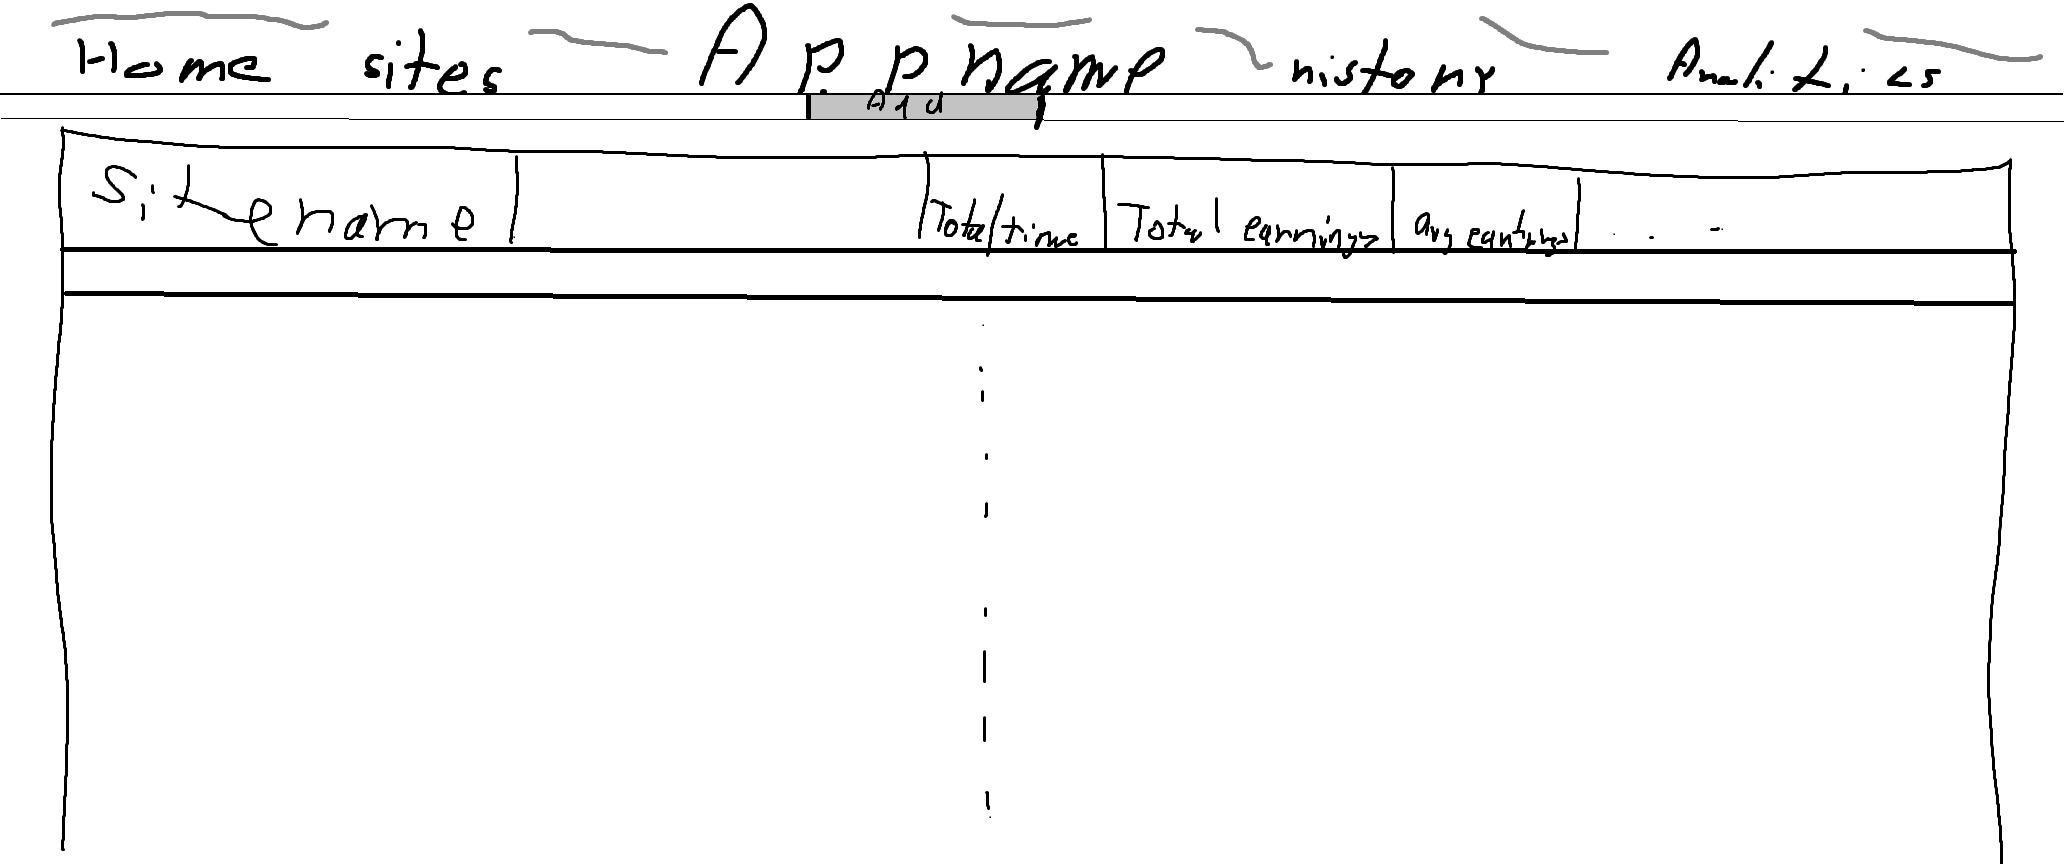 Home sites App name history Analitics
Add
Site name Total time Total earnings avg earnings . . -